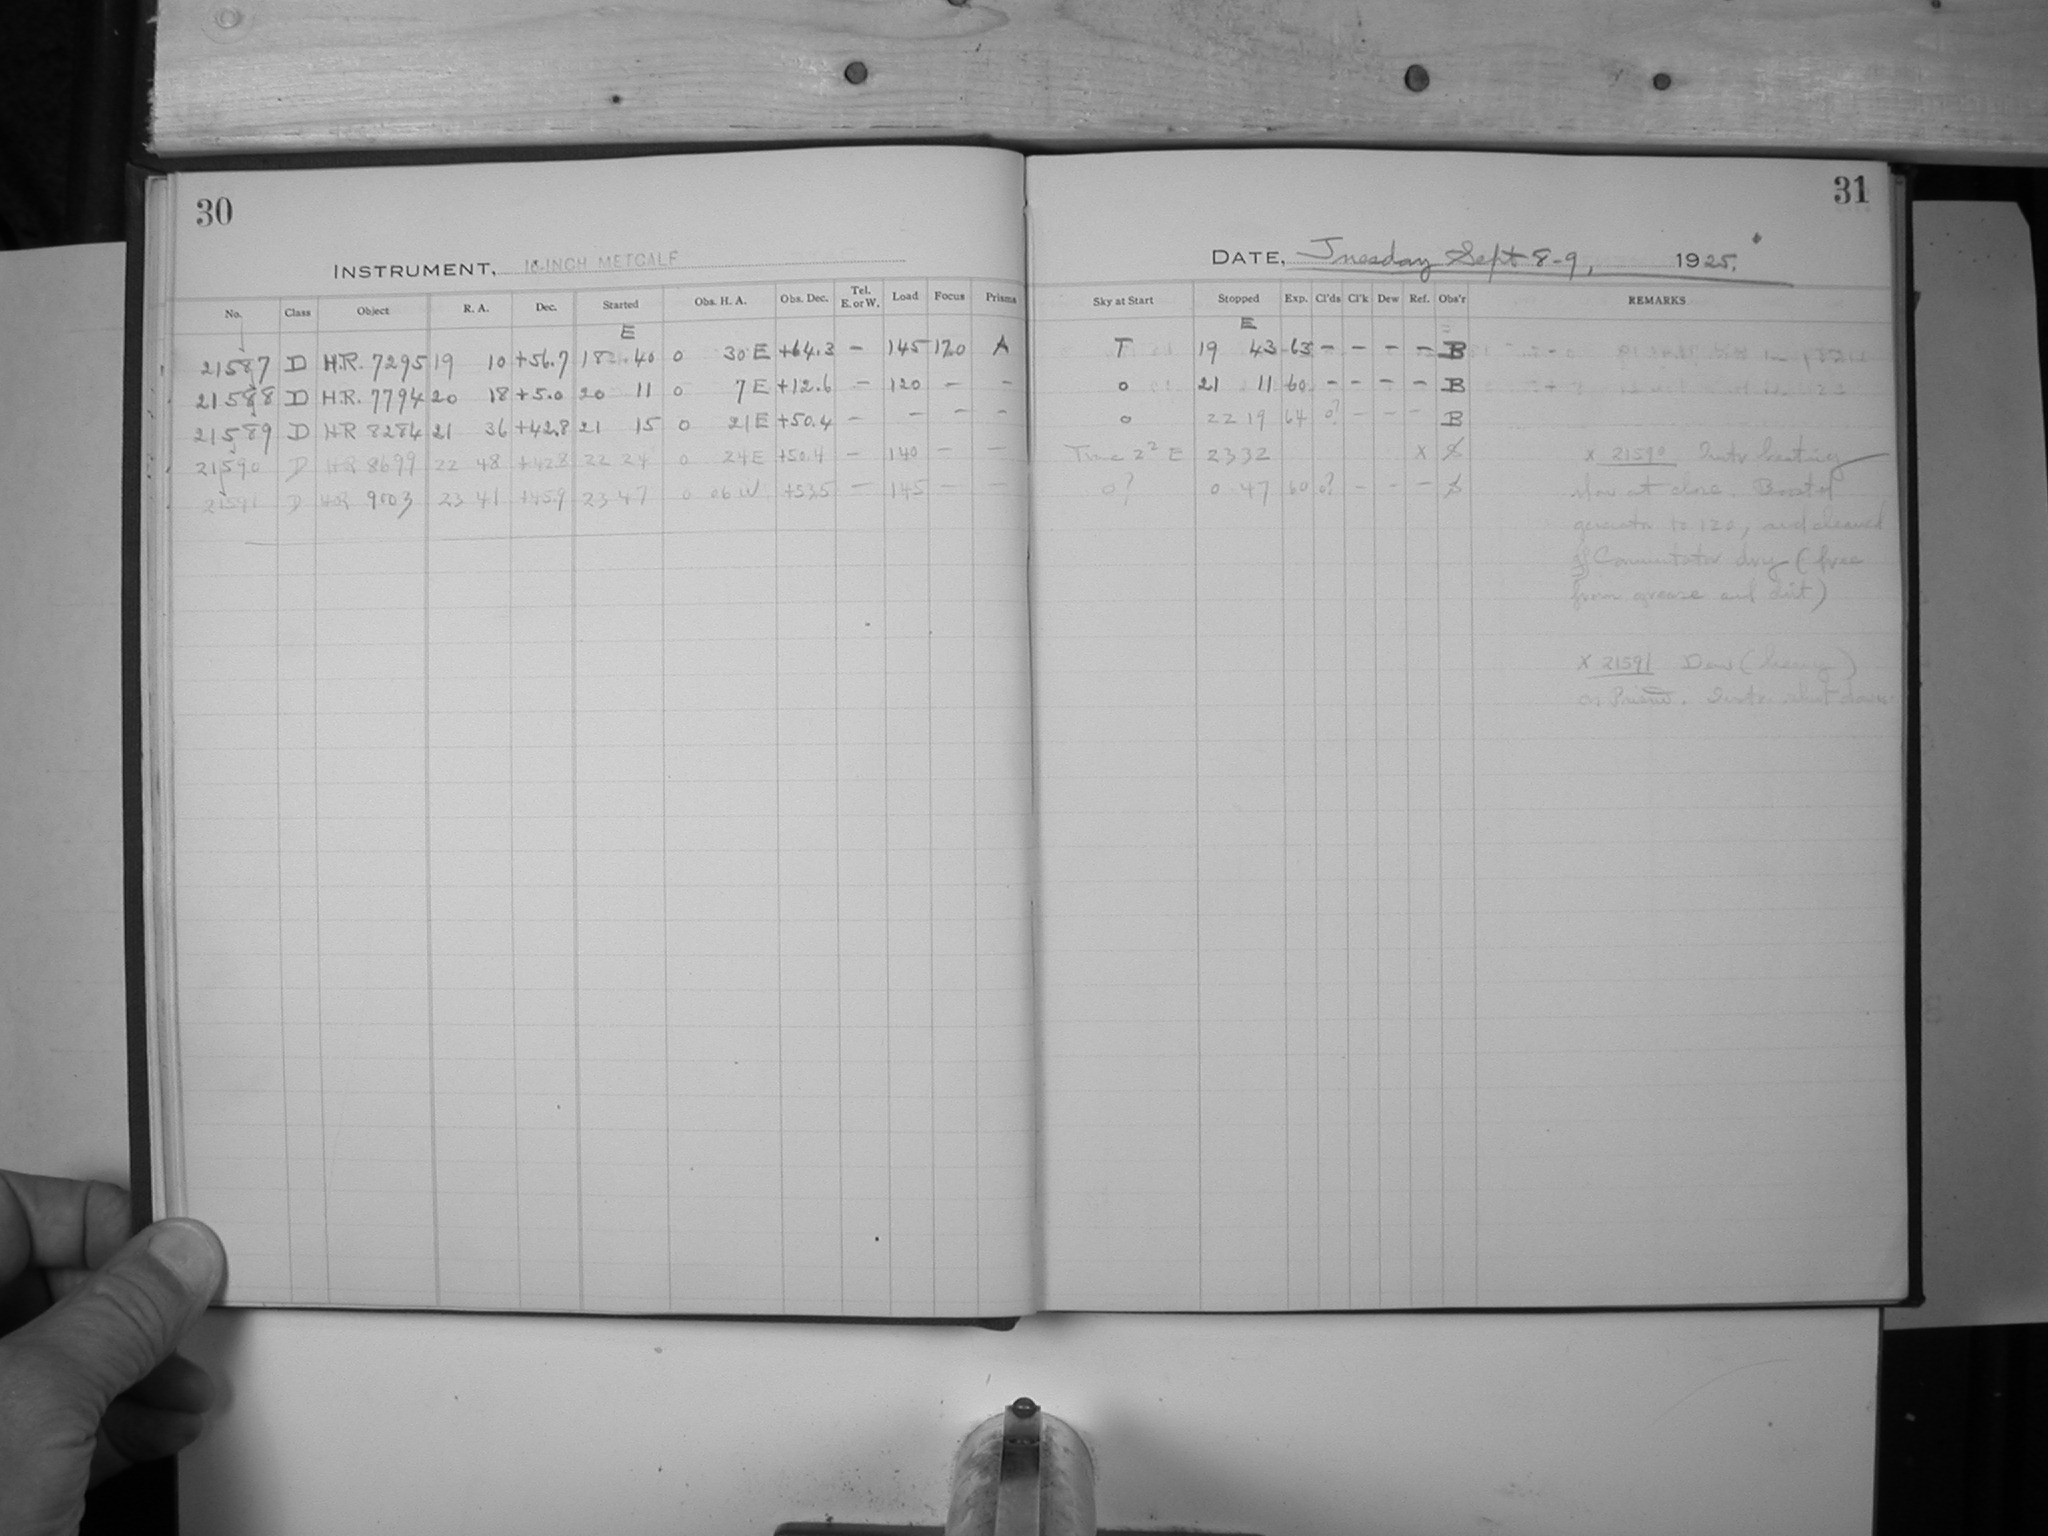 30
INSTRUMENT, 16-INCH METCALF
No. Class Object R. A. Dec. Started Obs. H. A. Obs. Dec. Tel. E. or W. Load Focus Prisms
E
21587 D H.R. 7295 19 10 +56.7 18 40 0 30 E +64.3 – 145 17.0 A
21588 D H.R. 7794 20 18 +5.0 20 11 0 7 E +12.6 – 120 – –
21589 D HR 8284 21 36 +42.8 21 15 0 21 E +50.4 – – – –
21590 D HR 8699 22 48 +42.8 22 24 0 24 E +50.4 – 140 – –
21591 D HR 9003 23 41 +45.9 23 47 0 06 W +53.5 – 145 – –
31
DATE, Tuesday Sept 8-9, 1925.
Sky at Start Stopped Exp. Cl'ds Cl'k Dew Ref. Obs'r REMARKS
E
T 19 43 63 – – – – B
0 21 11 60 – – – – B
0 22 19 64 0? – – – B
Time 2² E 23 32 x
0? 0 47 60 0? – – –
x 21590 Instr beating
slow at close. Boosted
generator to 120, and cleaned
off Commutator dry (free
from grease and dirt)
x 21591 Dew (heavy)
on Prism. Instr. shut down